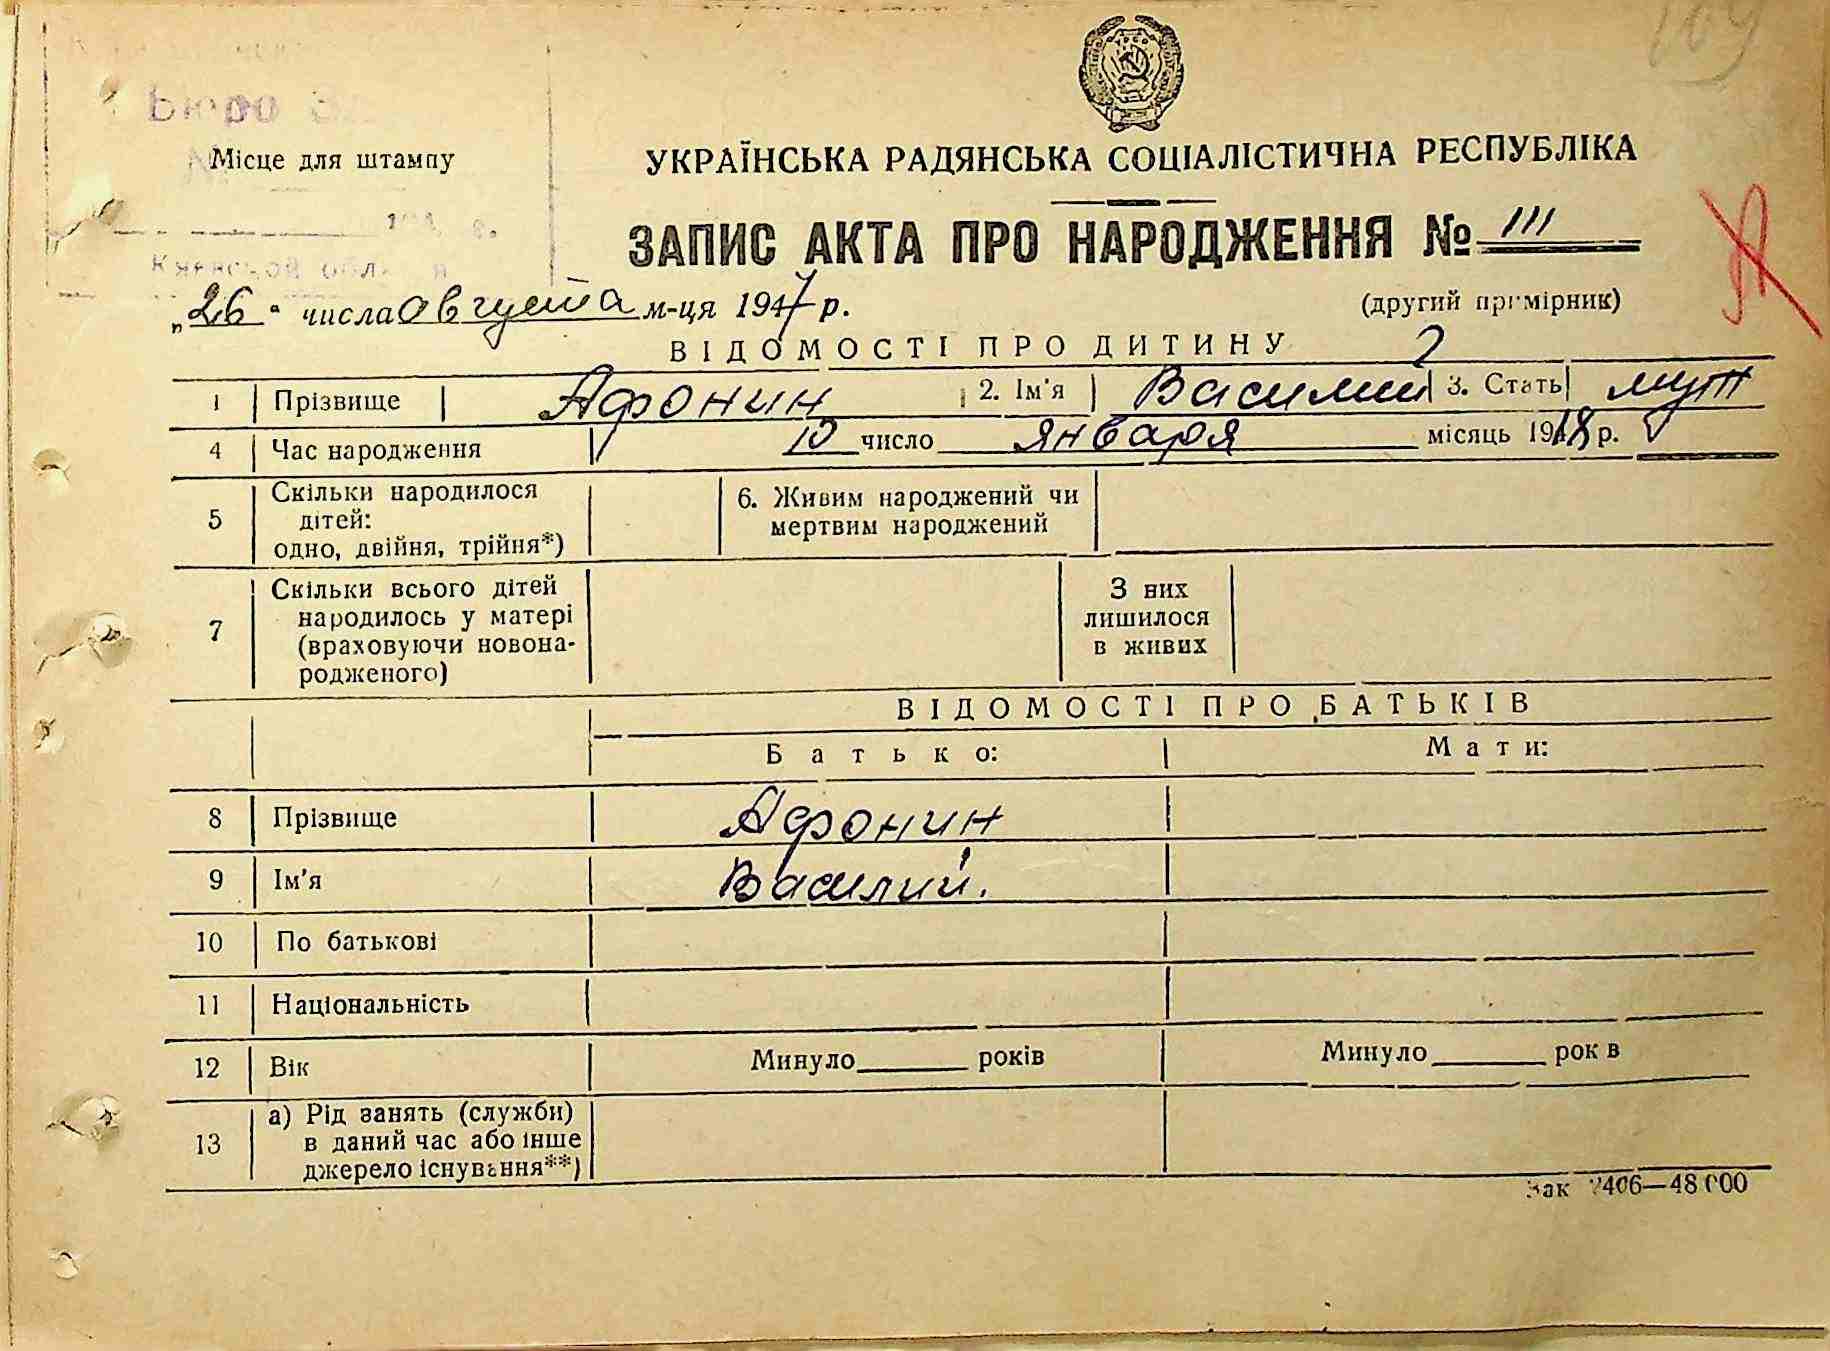 109
Бюро
Місце для штампу
Киевской обл
УКРАЇНСЬКА РАДЯНСЬКА СОЦІАЛІСТИЧНА РЕСПУБЛІКА
ЗАПИС АКТА ПРО НАРОДЖЕННЯ № 111
„26" числа августа м-ця 1947 р. (другий примірник)
ВІДОМОСТІ ПРО ДИТИНУ
1 Прізвище Афонин 2. Ім'я Василий 3. Стать муж
4 Час народження 10 число января місяць 1918 р.
5 Скільки народилося дітей: одно, двійня, трійня*) 6. Живим народжений чи мертвим народжений
7 Скільки всього дітей народилось у матері (враховуючи новонародженого) З них лишилося в живих
ВІДОМОСТІ ПРО БАТЬКІВ
Батько: Мати:
8 Прізвище Афонин
9 Ім'я Василий.
10 По батькові
11 Національність
12 Вік Минуло______ років Минуло______ рок в
13 а) Рід занять (служби) в даний час або інше джерело існування**)
Зак 2406—48 000